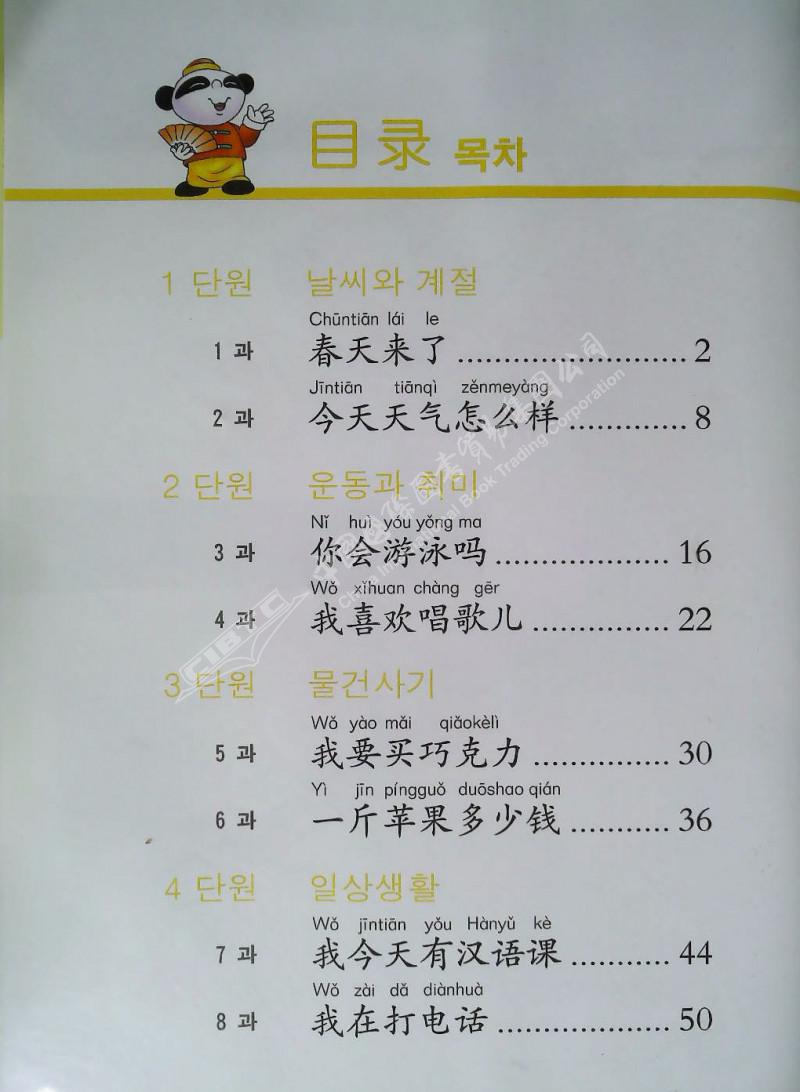 目录 목차
1 단원 날씨와 계절
Chūntiān lái le
1 과 春天来了 .................................. 2
Jīntiān tiānqì zěnmeyàng
2 과 今天天气怎么样 ................. 8
2 단원 운동과 취미
Nǐ huì yóu yǒng ma
3 과 你会游泳吗 ......................... 16
Wǒ xǐhuan chàng gēr
4 과 我喜欢唱歌儿 .................... 22
3 단원 물건사기
Wǒ yào mǎi qiǎokèlì
5 과 我要买巧克力 .................... 30
Yì jīn píngguǒ duōshao qián
6 과 一斤苹果多少钱 ............... 36
4 단원 일상생활
Wǒ jīntiān yǒu Hànyǔ kè
7 과 我今天有汉语课 ............... 44
Wǒ zài dǎ diànhuà
8 과 我在打电话 ......................... 50
中国国际图书贸易集团公司
China International Book Trading Corporation
CIBTC